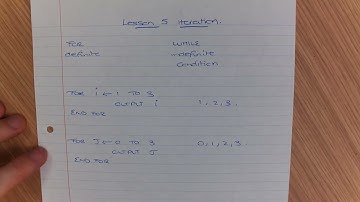 Lesson 5 iteration.
FOR WHILE
definite indefinite
condition
FOR i ← 1 TO 3
OUTPUT i 1, 2, 3.
END FOR
FOR J ← 0 TO 3 0, 1, 2, 3.
OUTPUT J
END FOR